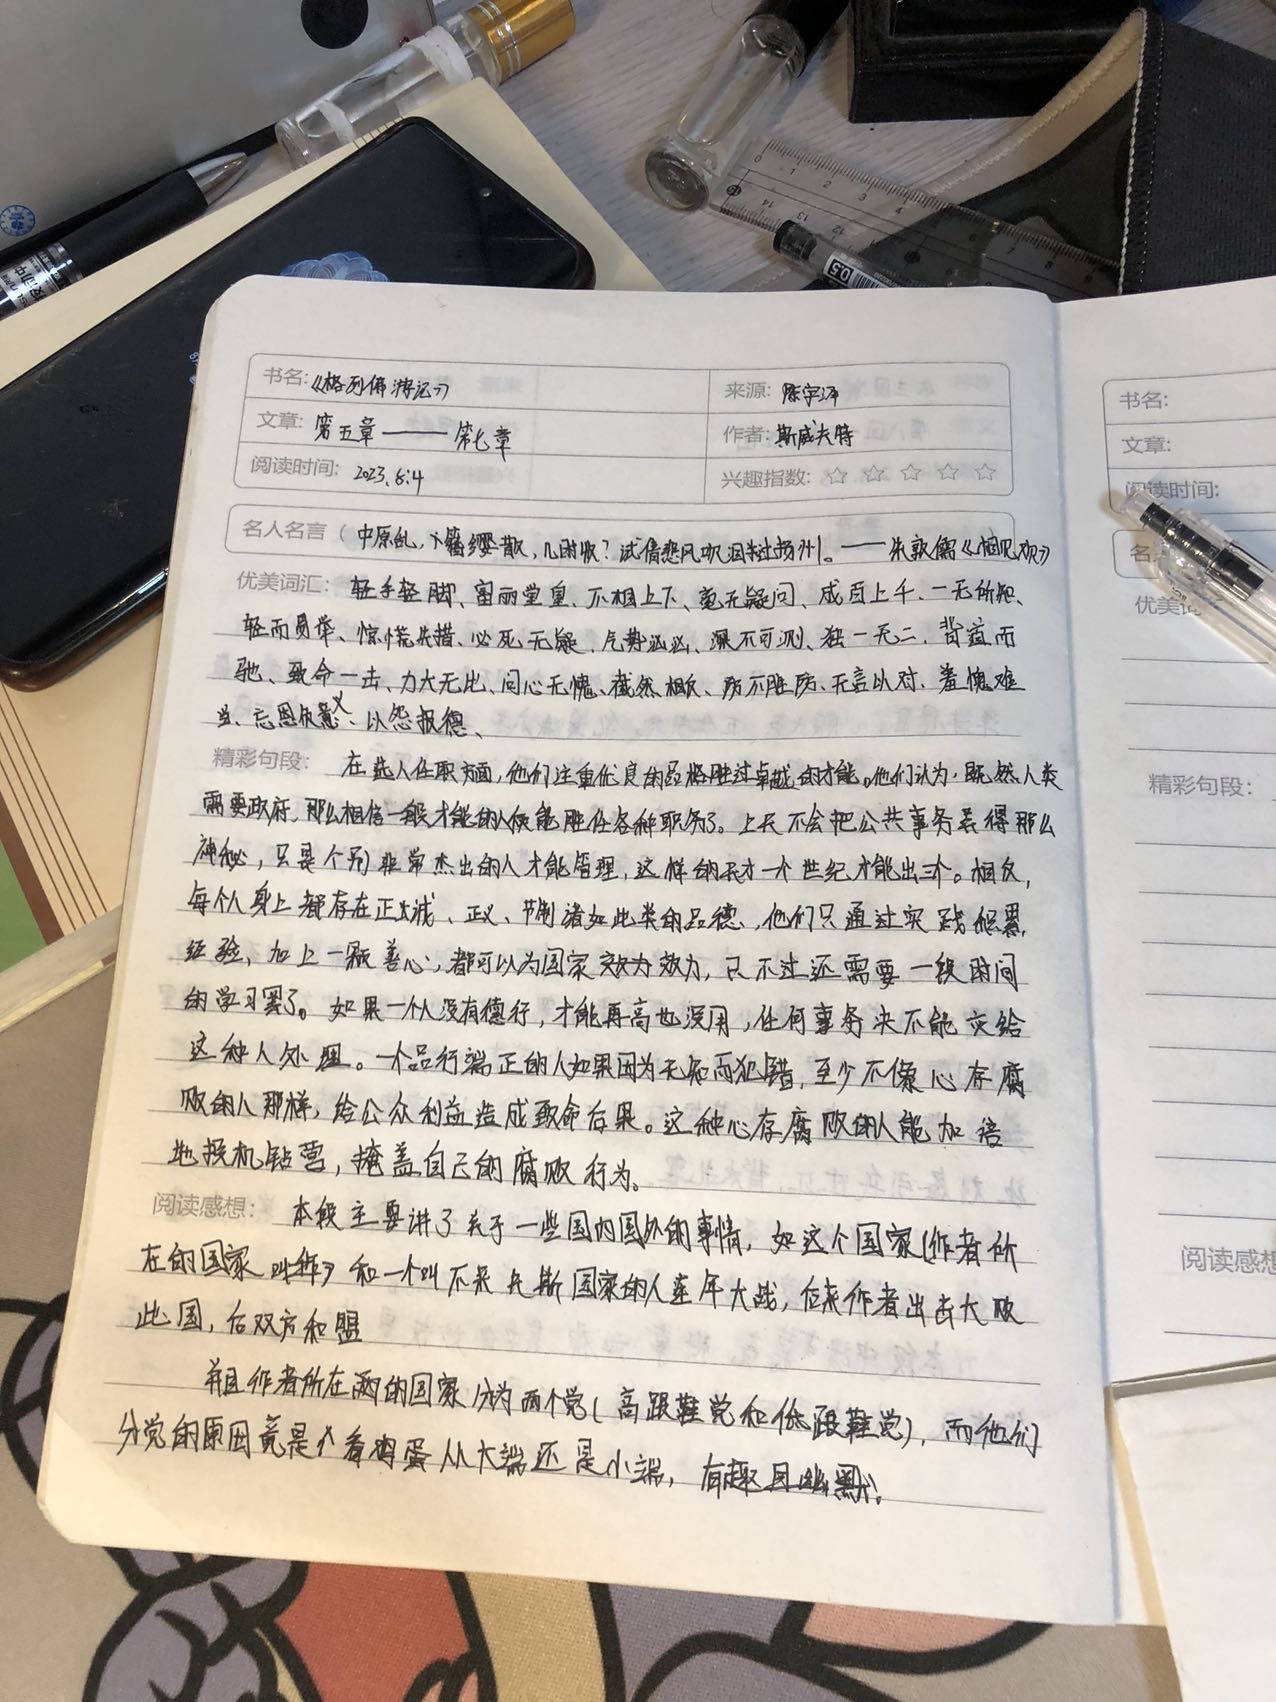 书名:《格列佛游记》
来源: 陈宇泽
文章: 第五章——第七章
作者: 斯威夫特
阅读时间: 2023.6.4
兴趣指数: ☆ ☆ ☆ ☆ ☆
名人名言 ( 中原乱,簪缨散,几时收?试倩悲风吹泪过扬州。——朱敦儒《相见欢》
优美词汇: 轻手轻脚、富丽堂皇、不相上下、毫无疑问、成百上千、一无所知、
轻而易举、惊慌失措、必死无疑、气势汹汹、深不可测、独一无二、背道而
驰、致命一击、力大无比、问心无愧、截然相反、防不胜防、无言以对、羞愧难
当、忘恩负义、以怨报德、
精彩句段: 在选人任职方面,他们注重优良的品格胜过卓越的才能。他们认为,既然人类
需要政府,那么相信一般才能的人便能胜任各种职务了。上天不会把公共事务弄得那么
神秘,只是个别非常杰出的人才能管理,这样的天才一个世纪才能出三个。相反,
每个人身上都存在正真诚、正义、节制诸如此类的品德,他们只通过实践积累
经验,加上一颗善心,都可以为国家效力,只不过还需要一段时间
的学习罢了。如果一个人没有德行,才能再高也没用,任何事务决不能交给
这种人处理。一个品行端正的人如果因为无知而犯错,至少不像心存腐
败的人那样,给公众利益造成致命后果。这种心存腐败的人能加倍
地投机钻营,掩盖自己的腐败行为。
阅读感想: 本段主要讲了关于一些国内国外的事情,如这个国家(作者所
在的国家 和一个叫不来夫斯国家的人连年大战,后来作者出击大败
此国,后双方和盟
并且作者所在的国家分为两个党(高跟鞋党和低跟鞋党),而他们
分党的原因竟是看鸡蛋从大端还是小端,有趣且幽默。
书名:
文章:
阅读时间:
精彩句段:
阅读感想
0.5